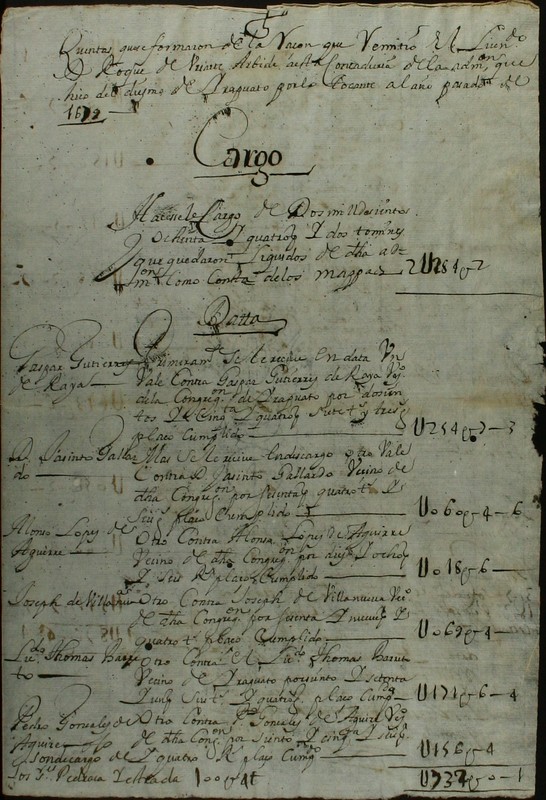 Quentas que se formaron de la Razon que Remitio el Licen.do
D Roque de Uriarte Arbide a esta Contaduria de la adm.on que
hizo del diesmo de Yraguato por lo tocante al año pasado de
Cargo
Hacesele Cargo de Dos mill docientos
ochenta y quatro p y dos tomines
que quedaron liquidos de dha ad
m.on Como Consta de los mappas 2U284p2
Datta
Gaspar Gutierres de Raya
Primeram.te Se le recive en data Un
Vale Contra Gaspar Gutierres de Raya Vz.o
de la Congreg.on de Yraguato por dosien
tos y cinq.ta y quatro p siete t y tres g
plaso Cumplido U254p7-3
D. Jasinto Gallardo
Mas Se le recive en discargo otro Vale
Contra D. Jasinto Gallardo Vecino de
dha Congreg.on por sesenta p quatro t y
seis g plaso Cumplido U060p4-6
Alonso Lopes de Aguirre
Otro Contra Alonso Lopes de Aguirre
Vecino de dha Congreg.on por dies y ocho p
y seis R.s plaso Cumplido U018p6
Joseph de Villanueva
Otro Contra Joseph de Villanueva Vez.o
de dha Congreg.on por sesenta y nueve p y
quatro t plaso Cumplido U069p4
Lic.do Thomas Barreto
Otro Contra el Lic.do Thomas Barreto
Vecino de Yraguato por siento y setenta
y un p seis t y quatro g plaso Cump.do U171p6-4
Pedro Gonsales de Aguirre
Otro Contra P.o Gonsales de Aguirre Vez.o
de dha Cong.on por siento y cinq.ta y seis p
y quatro R.s plaso Cump.do U156p4
son de cargo de
los 100p4t
U732p0-1